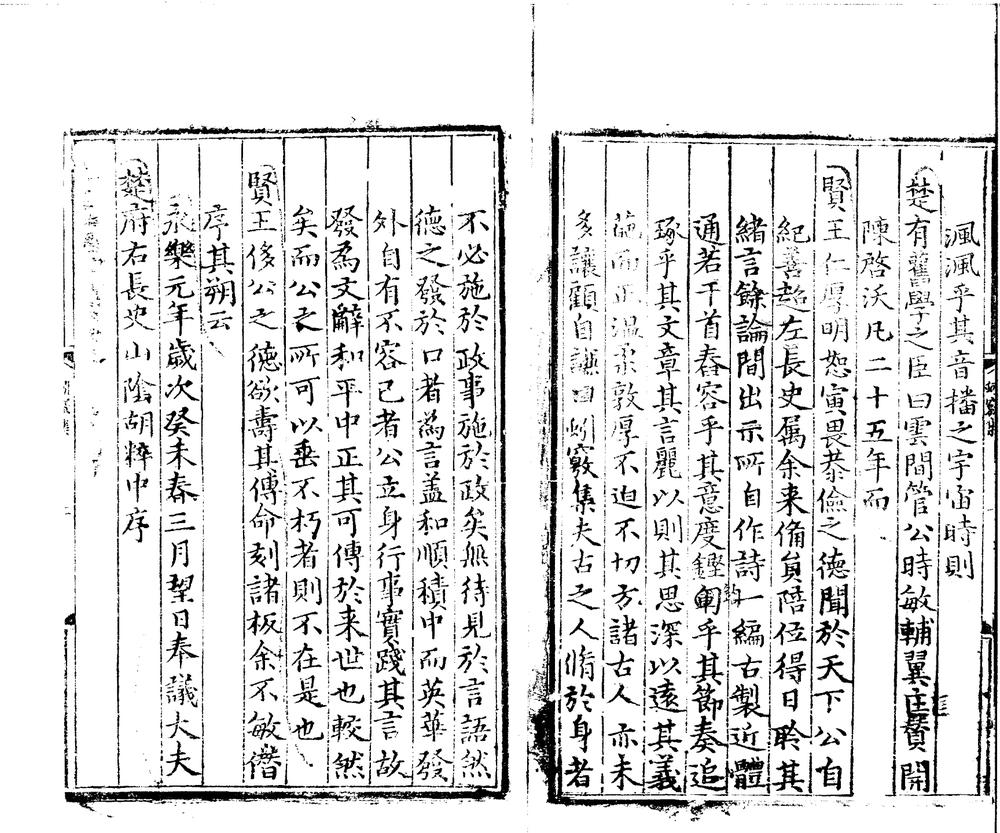 渢渢乎其音播之宇宙時則
楚有舊學之臣曰雲間管公時敏輔翼匡賛開
陳啓沃凡二十五年而
賢王仁厚明恕寅畏恭儉之德聞於天下公自
紀善超左長史属余来備貟陪位得日聆其
緒言餘論間出示所自作詩一編古製近體
通若干首舂容乎其意度鏗鍧乎其節奏追
琢乎其文章其言麗以則其思深以遠其義
而正温柔敦厚不迫不切方諸古人亦未
多讓顧自謙曰蚓竅集夫古之人脩於身者
不必施於政事施於政矣無待見於言語然
德之發於口者為言盖和順積中而英華發
外自有不容已者公立身行事實踐其言故
發為文辭和平中正其可傳於来世也較然
矣而公之所可以垂不朽者則不在是也
賢王侈公之德欲壽其傳命刻諸板余不敏僭
序其朔云
永樂元年歲次癸未春三月望日奉議大夫
楚府右長史山陰胡粹中序